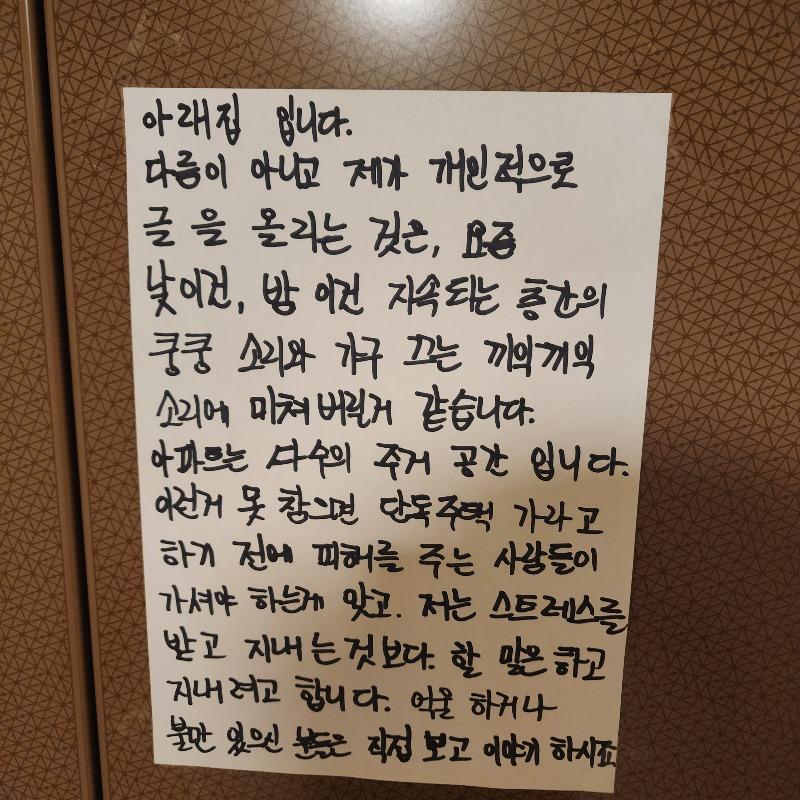 아래집 입니다.
다름이 아니고 제가 개인적으로
글 을 올리는 것은, 요즘
낮이건, 밤 이건 지속되는 층간의
쿵쿵 소리와 가구 끄는 끼익끼익
소리에 미쳐버릴거 같습니다.
아파트는 다수의 주거 공간 입니다.
이런거 못 참으면 단독주택 가라고
하기 전에 피해를 주는 사람들이
가셔야 하는게 맞고. 저는 스트레스를
받고 지내는것 보다. 할 말은 하고
지내려고 합니다. 억울 하거나
불만 있으신 분들은 직접 보고 이야기 하시죠